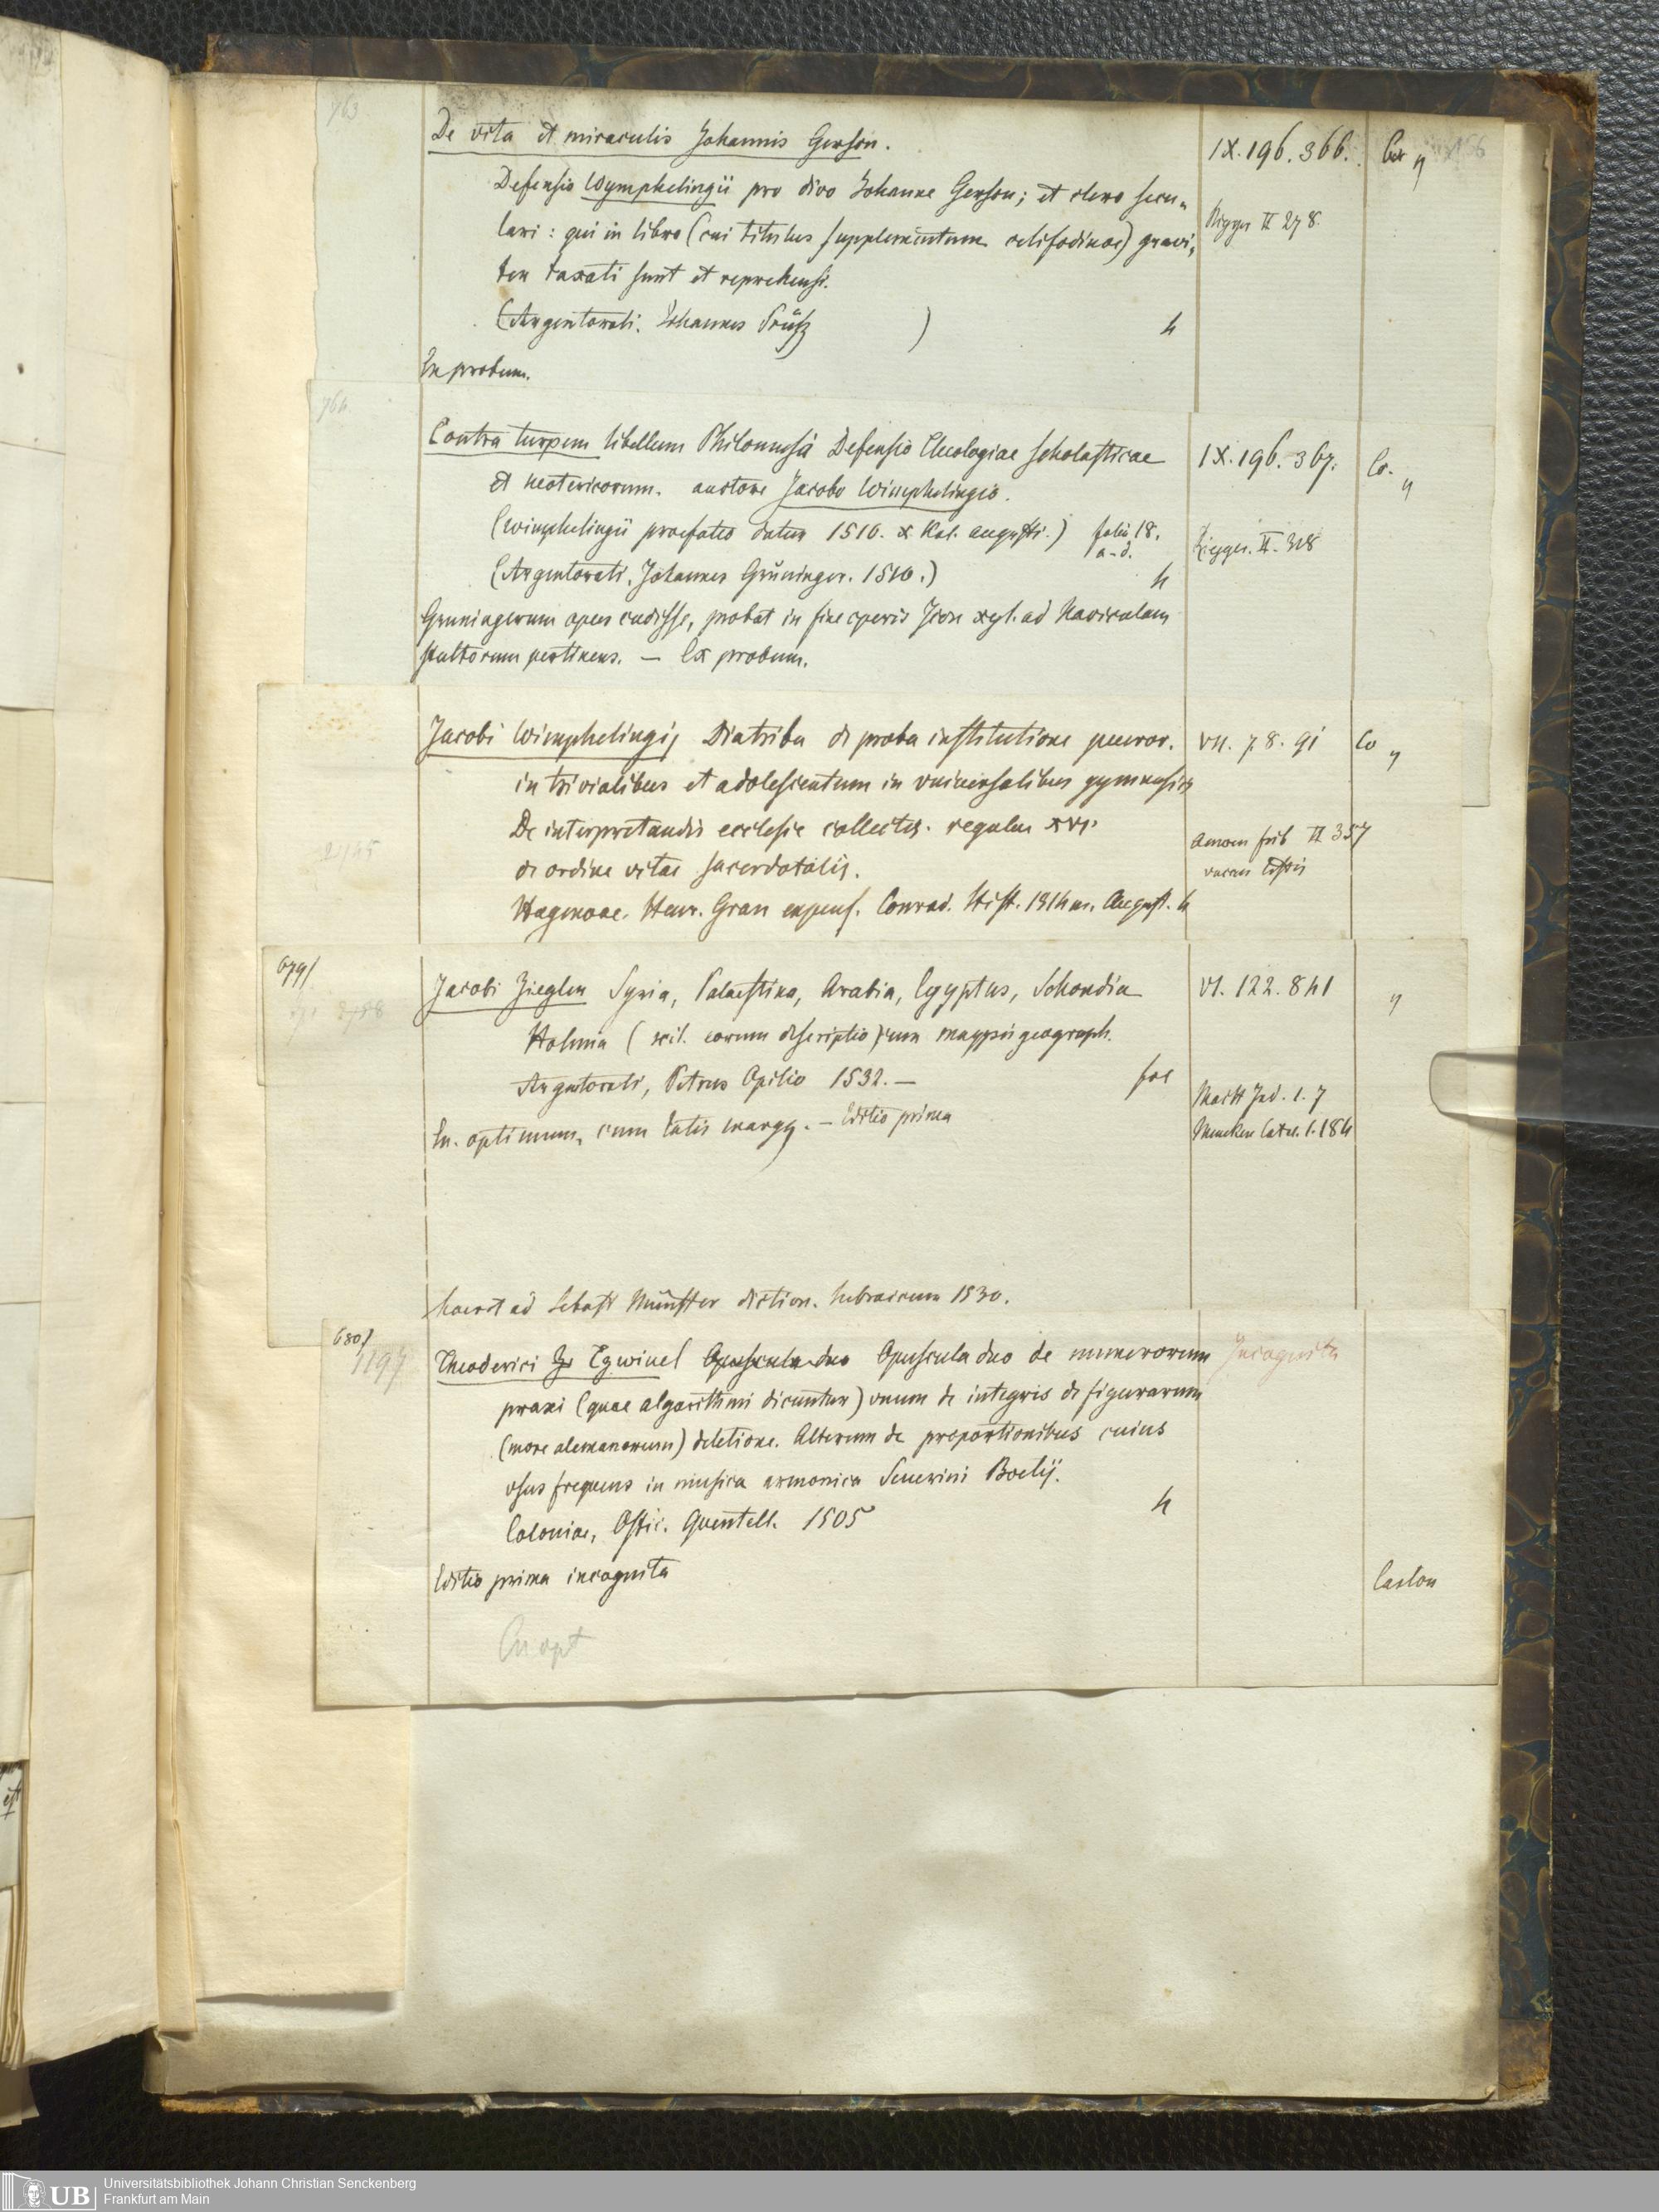 763
De vita et miraculis Johannis Gerson. IX. 196. 366.
Defensio Wymphelingii pro divo Johanne Gerson; et clero secu-
lari: qui in libro (cui titulus supplementum celifodinae) gravi- Rigger II 278.
ter taxati sunt et reprehensi.
(Argentorati. Johannes Prüß ) 4
Ex probum.
764
Contra turpem libellum Philomusi Defensio Theologiae scholasticae IX. 196. 367. Co. η
et neotericorum. auctore Jacobo Wimphelingio.
(Wimphelingii praefatio datur 1510. X Kal. augusti.) folia 18. a-d. Rigger. II. 318
(Argentorati, Johannes Grüninger. 1510.) 4
Gruningerum opus cudisse, probat in fine operis Icon xyl. ad Naviculam
stultorum pertinens. — Ex probum.
Jacobi Wimphelingij Diatriba de proba institutione pueror. VII. 78. 91 Co η
in trivialibus et adolescentum in vniuersalibus gymnasijs
De interpretandis ecclesie collectis. regulae XVI.
2145
de ordine vitae sacerdotalis. Amoen frib II 357
Hagenoae. Henr. Gran expens. Conrad. Hist. 1514 m. August. 4
679)
Jacobi Ziegler Syria, Palaestina, Arabia, Egyptus, Schondia VI. 122. 841 η
Holmia (scil. eorum descriptio) cum mappis geograph.
Argentorati, Petrus Opilio 1532. — fol
Maitt Ind. 1. 7
Ex. optimum, cum latis margg. — Editio prima Mencken Catal. 1. 184
haeret ad Sebast Münster diction. hebraicum 1530.
680)
1197
Theoderici Zr Tzwivel Opuscula duo Opuscula duo de numerorum Incognita
praxi (quae algorithmi dicuntur) vnum de integris de figurarum
(more alemanorum) deletione. Alterum de proportionibus cuius
vsus frequens in musica armonica Seuerini Boetij.
Coloniae, Offic. Quentell. 1505 4
Editio prima incognita
Ex opt
Universitätsbibliothek Johann Christian Senckenberg
Frankfurt am Main
UB